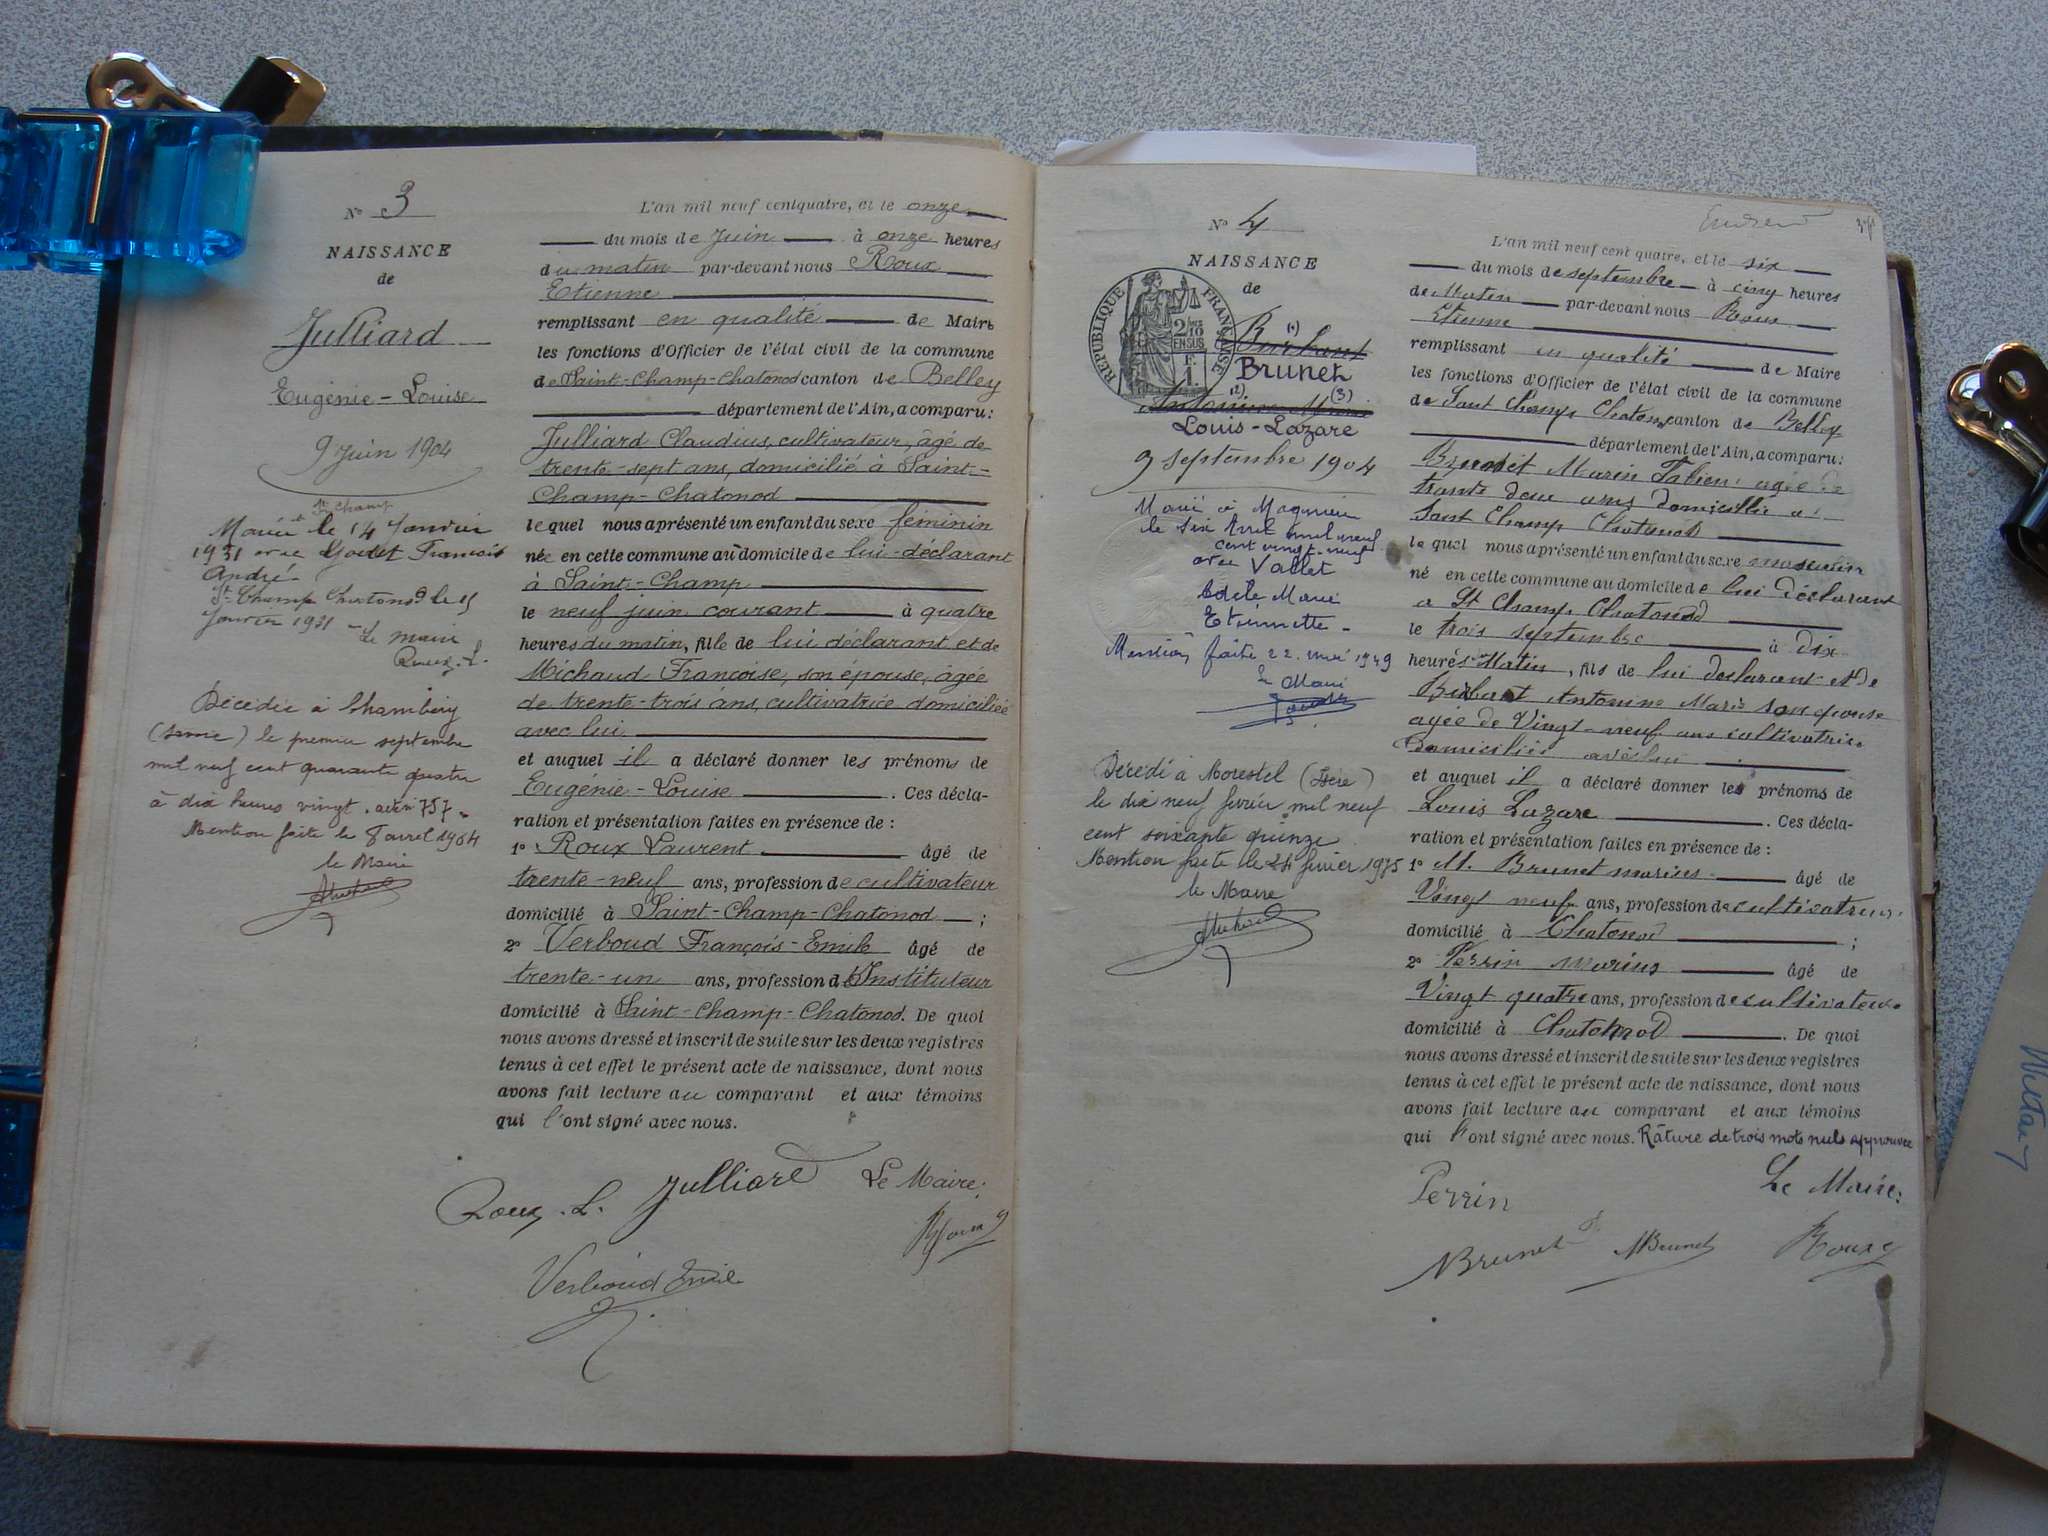 N° 3
NAISSANCE
de
Julliard
Eugénie-Louise
9 Juin 1904
St Champ
Marié à le 14 Janvier
1931 avec Goddet François
André-
St Champ Chatonod le 15
Janvier 1931 - Le maire
Roux. L.
Décédée à Chambéry
(Savoie) le premier septembre
mil neuf cent quarante quatre
à dix heures vingt.
Mention faite le 8 avril 1964
le Maire
L'an mil neuf cent quatre, et le onze
du mois de Juin à onze heures
du matin par-devant nous Roux
Etienne
remplissant en qualité de Maire
les fonctions d'Officier de l'état civil de la commune
de Saint-Champ-Chatonod canton de Belley
département de l'Ain, a comparu:
Julliard Claudius, cultivateur, âgé de
trente-sept ans, domicilié à Saint-
Champ-Chatonod
le quel nous a présenté un enfant du sexe féminin
née en cette commune au domicile de lui-déclarant
à Saint-Champ
le neuf juin courant à quatre
heures du matin, fille de lui déclarant et de
Michaud Françoise, son épouse, âgée
de trente-trois ans, cultivatrice domiciliée
avec lui
et auquel il a déclaré donner les prénoms de
Eugénie-Louise. Ces décla-
ration et présentation faites en présence de:
1° Roux Laurent âgé de
trente-neuf ans, profession de cultivateur
domicilié à Saint-Champ-Chatonod;
2° Verboud François-Emile âgé de
trente-un ans, profession d'Instituteur
domicilié à Saint-Champ-Chatonod. De quoi
nous avons dressé et inscrit de suite sur les deux registres
tenus à cet effet le présent acte de naissance, dont nous
avons fait lecture au comparant et aux témoins
qui l'ont signé avec nous.
Roux. L. Julliard Le Maire:
Roux
Verboud Emile
N° 4
NAISSANCE
de
RÉPUBLIQUE FRANÇAISE
2/10 EN SUS
1F.
(1)
Burbant
Brunet
(2) (3)
Antonine Marie
Louis-Lazare
3 septembre 1904
Marié à Magnieu
le six Avril mil neuf
cent vingt-neuf
avec Vallet
Adèle Marie
Etiennette-
Mention faite 22 mai 1949
Le Maire
Décédé à Morestel (Isère)
le dix neuf février mil neuf
cent soixante quinze
Mention faite le 24 février 1975
le Maire
L'an mil neuf cent quatre, et le six
du mois de septembre à cinq heures
de Matin par-devant nous Roux
Etienne
remplissant en qualité de Maire
les fonctions d'Officier de l'état civil de la commune
de Saint Champ Chatonod canton de Belley
département de l'Ain, a comparu:
Brunet Marin Fabien agé de
trante deux ans domicillié a
Saint Champ Chatonod
le quel nous a présenté un enfant du sexe masculin
né en cette commune au domicile de lui déclarant
a St Champ Chatonod
le trois septembre à dix
heures Matin, fils de lui declarant et de
Burbant Antonine Marie son epouse
agée de Vingt-neuf ans cultivatrice
domiciliée avec lui
et auquel il a déclaré donner les prénoms de
Louis Lazare. Ces décla-
ration et présentation faites en présence de:
1° M. Brunet marius âgé de
Vingt neuf ans, profession de cultivateur
domicilié à Chatonod;
2° Perrin marius âgé de
Vingt quatre ans, profession de cultivateur
domicilié à Chatonod. De quoi
nous avons dressé et inscrit de suite sur les deux registres
tenus à cet effet le présent acte de naissance, dont nous
avons fait lecture au comparant et aux témoins
qui l'ont signé avec nous. Râture de trois mots nuls approuvée
Perrin Le Maire:
Brunet F. MBrunet Roux